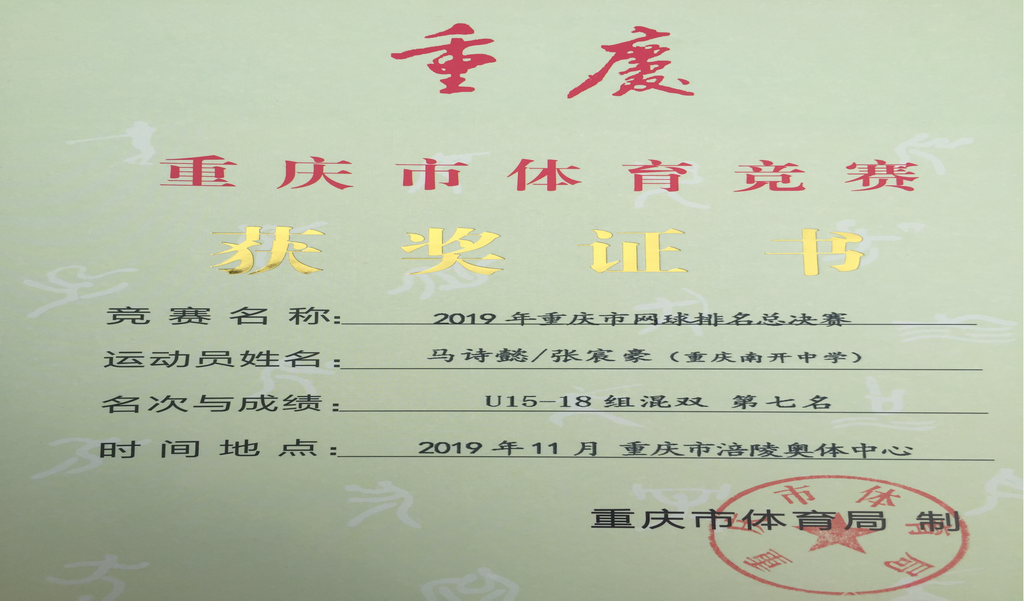 重慶
重庆市体育竞赛
获奖证书
竞赛名称: 2019年重庆市网球排名总决赛
运动员姓名: 马诗懿/张宸豪(重庆南开中学)
名次与成绩: U15-18组混双 第七名
时间地点: 2019年11月 重庆市涪陵奥体中心
重庆市体育局 制
重庆市体育局